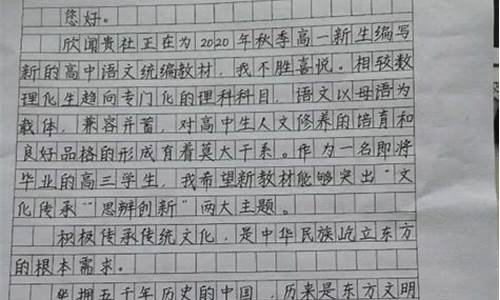 您好。
欣闻贵社正在为2020年秋季高一新生编写
新的高中语文统编教材，我不胜喜悦。相较数
理化生趋向专门化的理科科目，语文以母语为
载体，兼容并蓄，对高中生人文修养的培育和
良好品格的形成有着莫大干系。作为一名即将
毕业的高三学生，我希望新教材能够突出“文
化传承”“思辨创新”两大主题。
积极传承传统文化，是中华民族屹立东方
的根本需求。
坐拥五千年历史的中国，历来是东方文明